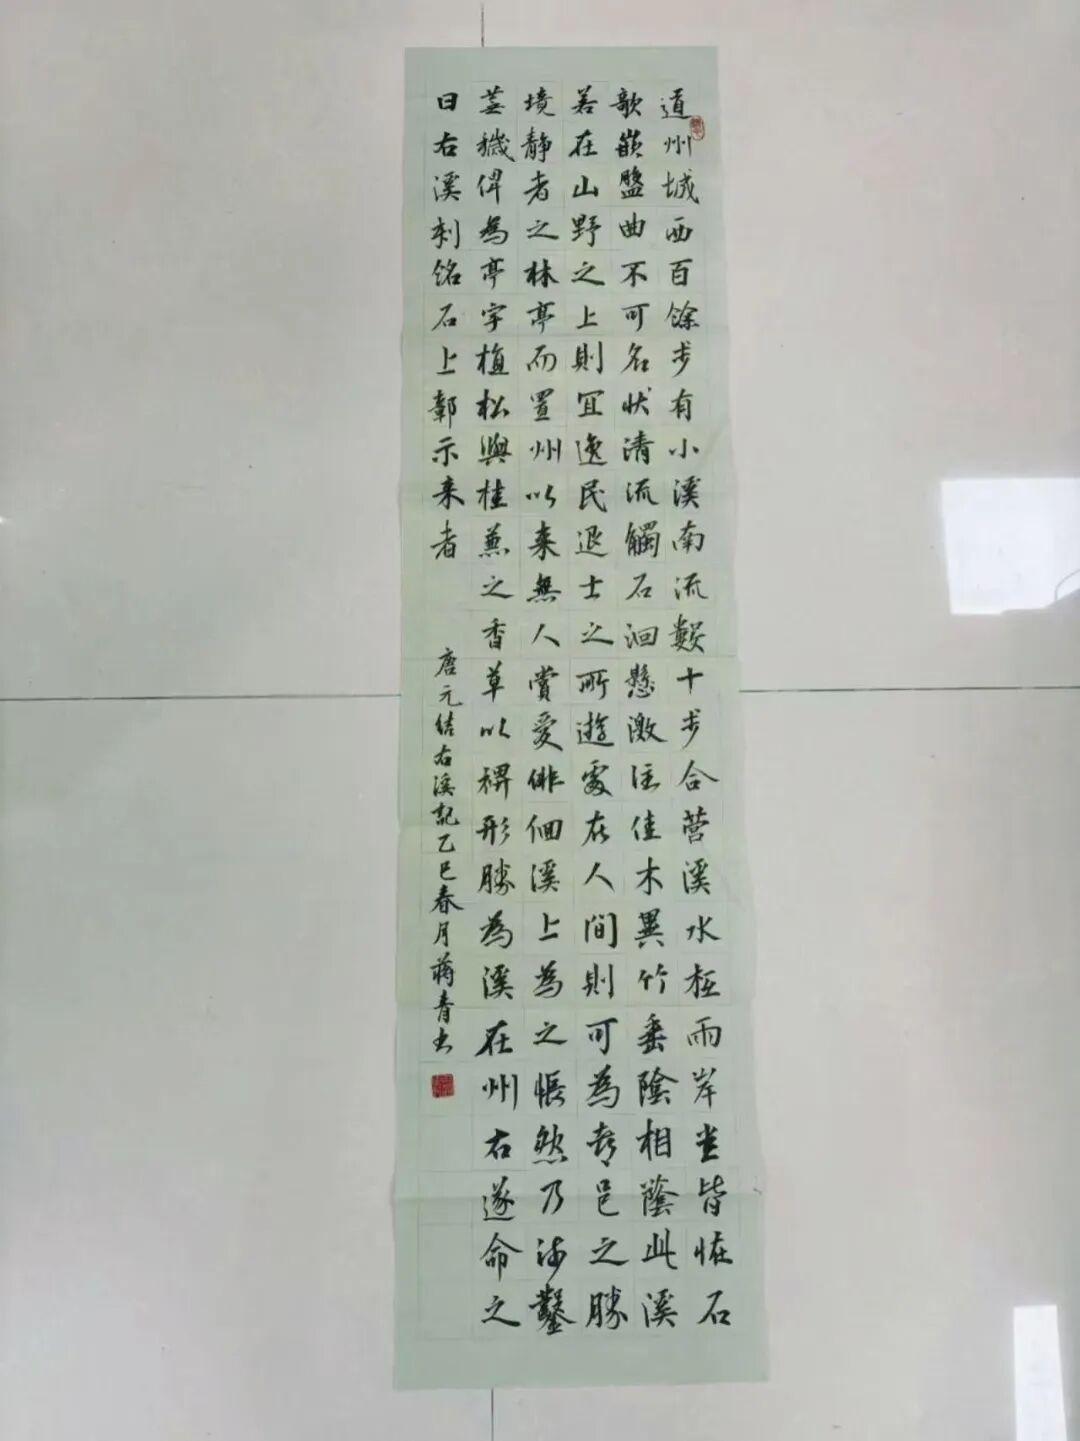 道州城西百餘步有小溪南流數十步合营溪水抵兩岸悉皆怪石
欹嵌盤曲不可名狀清流觸石洄懸激注佳木異竹垂陰相蔭此溪
若在山野之上則宜逸民退士之所遊處在人間則可為都邑之勝
境靜者之林亭而置州以来無人賞愛徘徊溪上為之悵然乃疏鑿
蕪穢俾為亭宇植松與桂兼之香草以裨形勝為溪在州右遂命之
曰右溪刻銘石上彰示来者
唐元结右溪記乙巳春月蒋青书